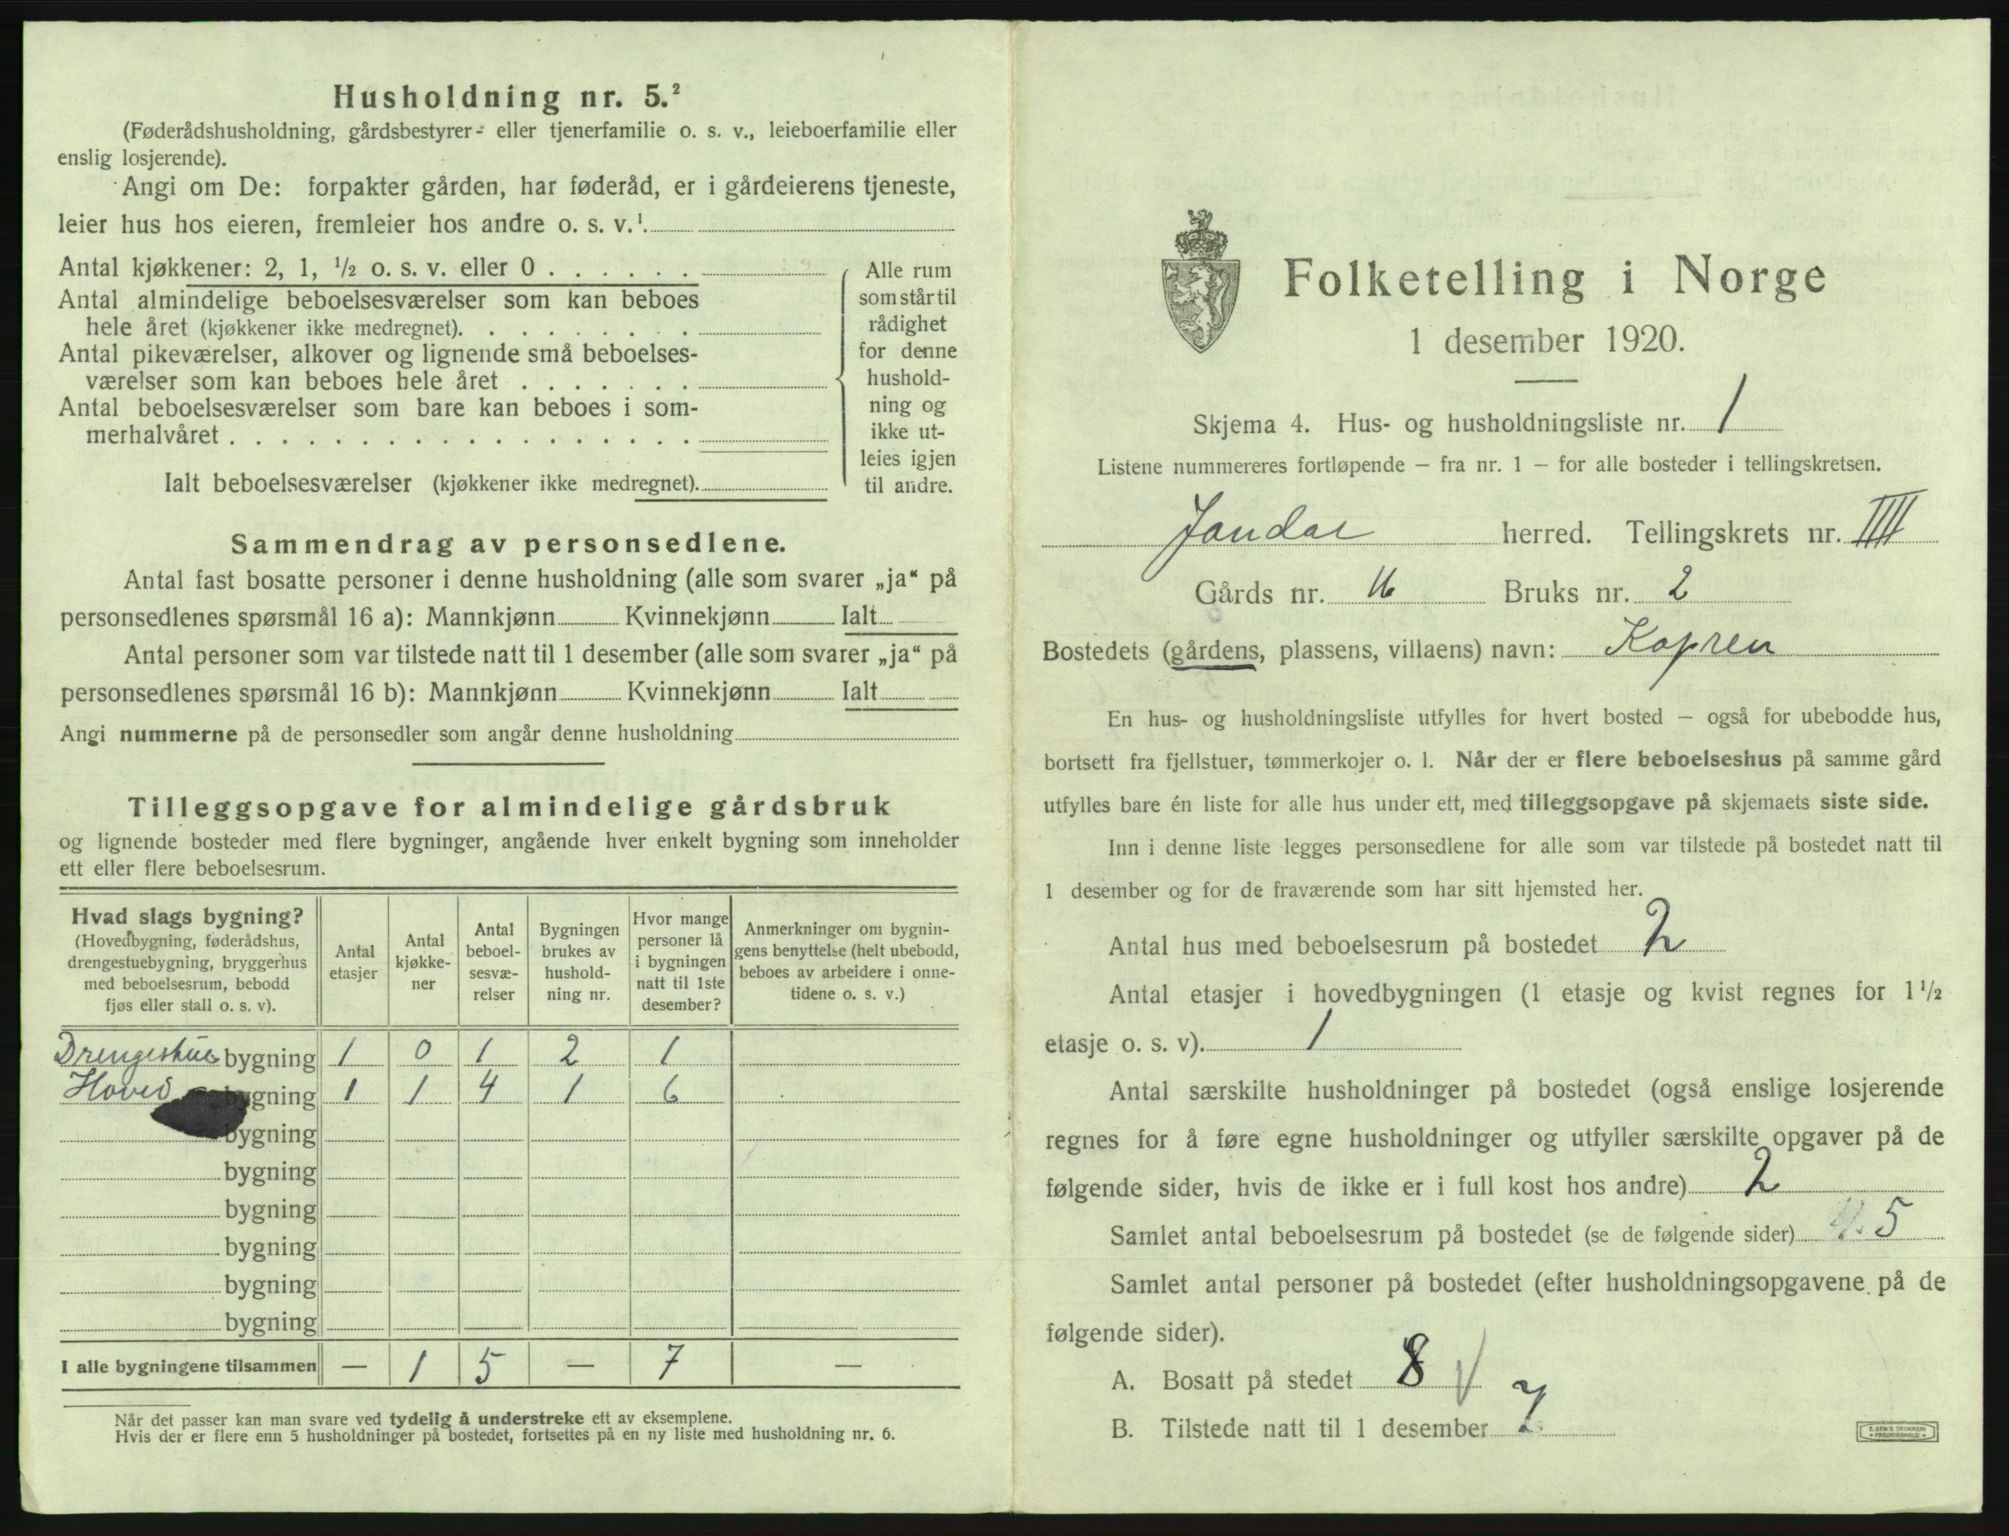 Husholdning nr. 5.²
(Føderådshusholdning, gårdsbestyrer- eller tjenerfamilie o. s. v., leieboerfamilie eller
enslig losjerende).
Angi om De: forpakter gården, har føderåd, er i gårdeierens tjeneste,
leier hus hos eieren, fremleier hos andre o. s. v.¹.
Antal kjøkkener: 2, 1, ½ o. s. v. eller 0 . . . . . .
Antal almindelige beboelsesværelser som kan beboes
hele året (kjøkkener ikke medregnet). . . . . . . . .
Antal pikeværelser, alkover og lignende små beboelses-
værelser som kan beboes hele året . . . . . . .
Antal beboelsesværelser som bare kan beboes i som-
merhalvåret . . . . . . . . . . . . . . . . . .
Ialt beboelsesværelser (kjøkkener ikke medregnet).
Alle rum
som står til
rådighet
for denne
hushold-
ning og
ikke ut-
leies igjen
til andre.
Sammendrag av personsedlene.
Antal fast bosatte personer i denne husholdning (alle som svarer „ja“ på
personsedlenes spørsmål 16 a): Mannkjønn Kvinnekjønn Ialt
Antal personer som var tilstede natt til 1 desember (alle som svarer „ja“ på
personsedlenes spørsmål 16 b): Mannkjønn Kvinnekjønn Ialt
Angi nummerne på de personsedler som angår denne husholdning
Tilleggsopgave for almindelige gårdsbruk
og lignende bosteder med flere bygninger, angående hver enkelt bygning som inneholder
ett eller flere beboelsesrum.
Hvad slags bygning?
(Hovedbygning, føderådshus,
drengestuebygning, bryggerhus
med beboelsesrum, bebodd
fjøs eller stall o. s. v).
Antal
etasjer
Antal
kjøkke-
ner
Antal
beboel-
sesvæ-
relser
Bygningen
brukes av
hushold-
ning nr.
Hvor mange
personer lå
i bygningen
natt til 1ste
desember?
Anmerkninger om bygnin-
gens benyttelse (helt ubebodd,
beboes av arbeidere i onne-
tidene o. s. v.)
Drengestue bygning 1 0 1 2 1
Hoved bygning 1 1 4 1 6
bygning
bygning
bygning
bygning
bygning
bygning
I alle bygningene tilsammen — 1 5 — 7 —
Når det passer kan man svare ved tydelig å understreke ett av eksemplene.
Hvis der er flere enn 5 husholdninger på bostedet, fortsettes på en ny liste med husholdning nr. 6.
Folketelling i Norge
1 desember 1920.
Skjema 4. Hus- og husholdningsliste nr. 1
Listene nummereres fortløpende – fra nr. 1 – for alle bosteder i tellingskretsen.
herred. Tellingskrets nr. IIII
Gårds nr. Bruks nr. 2
Bostedets (gårdens, plassens, villaens) navn: Kopren
En hus- og husholdningsliste utfylles for hvert bosted – også for ubebodde hus,
bortsett fra fjellstuer, tømmerkojer o. l. Når der er flere beboelseshus på samme gård
utfylles bare én liste for alle hus under ett, med tilleggsopgave på skjemaets siste side.
Inn i denne liste legges personsedlene for alle som var tilstede på bostedet natt til
1 desember og for de fraværende som har sitt hjemsted her.
Antal hus med beboelsesrum på bostedet 2
Antal etasjer i hovedbygningen (1 etasje og kvist regnes for 1½
etasje o. s. v). 1
Antal særskilte husholdninger på bostedet (også enslige losjerende
regnes for å føre egne husholdninger og utfyller særskilte opgaver på de
følgende sider, hvis de ikke er i full kost hos andre) 2
Samlet antal beboelsesrum på bostedet (se de følgende sider) 5
Samlet antal personer på bostedet (efter husholdningsopgavene på de
følgende sider).
A. Bosatt på stedet 8
B. Tilstede natt til 1 desember 7
E. SEM'S TRYKKERI
FREDRIKSHALD